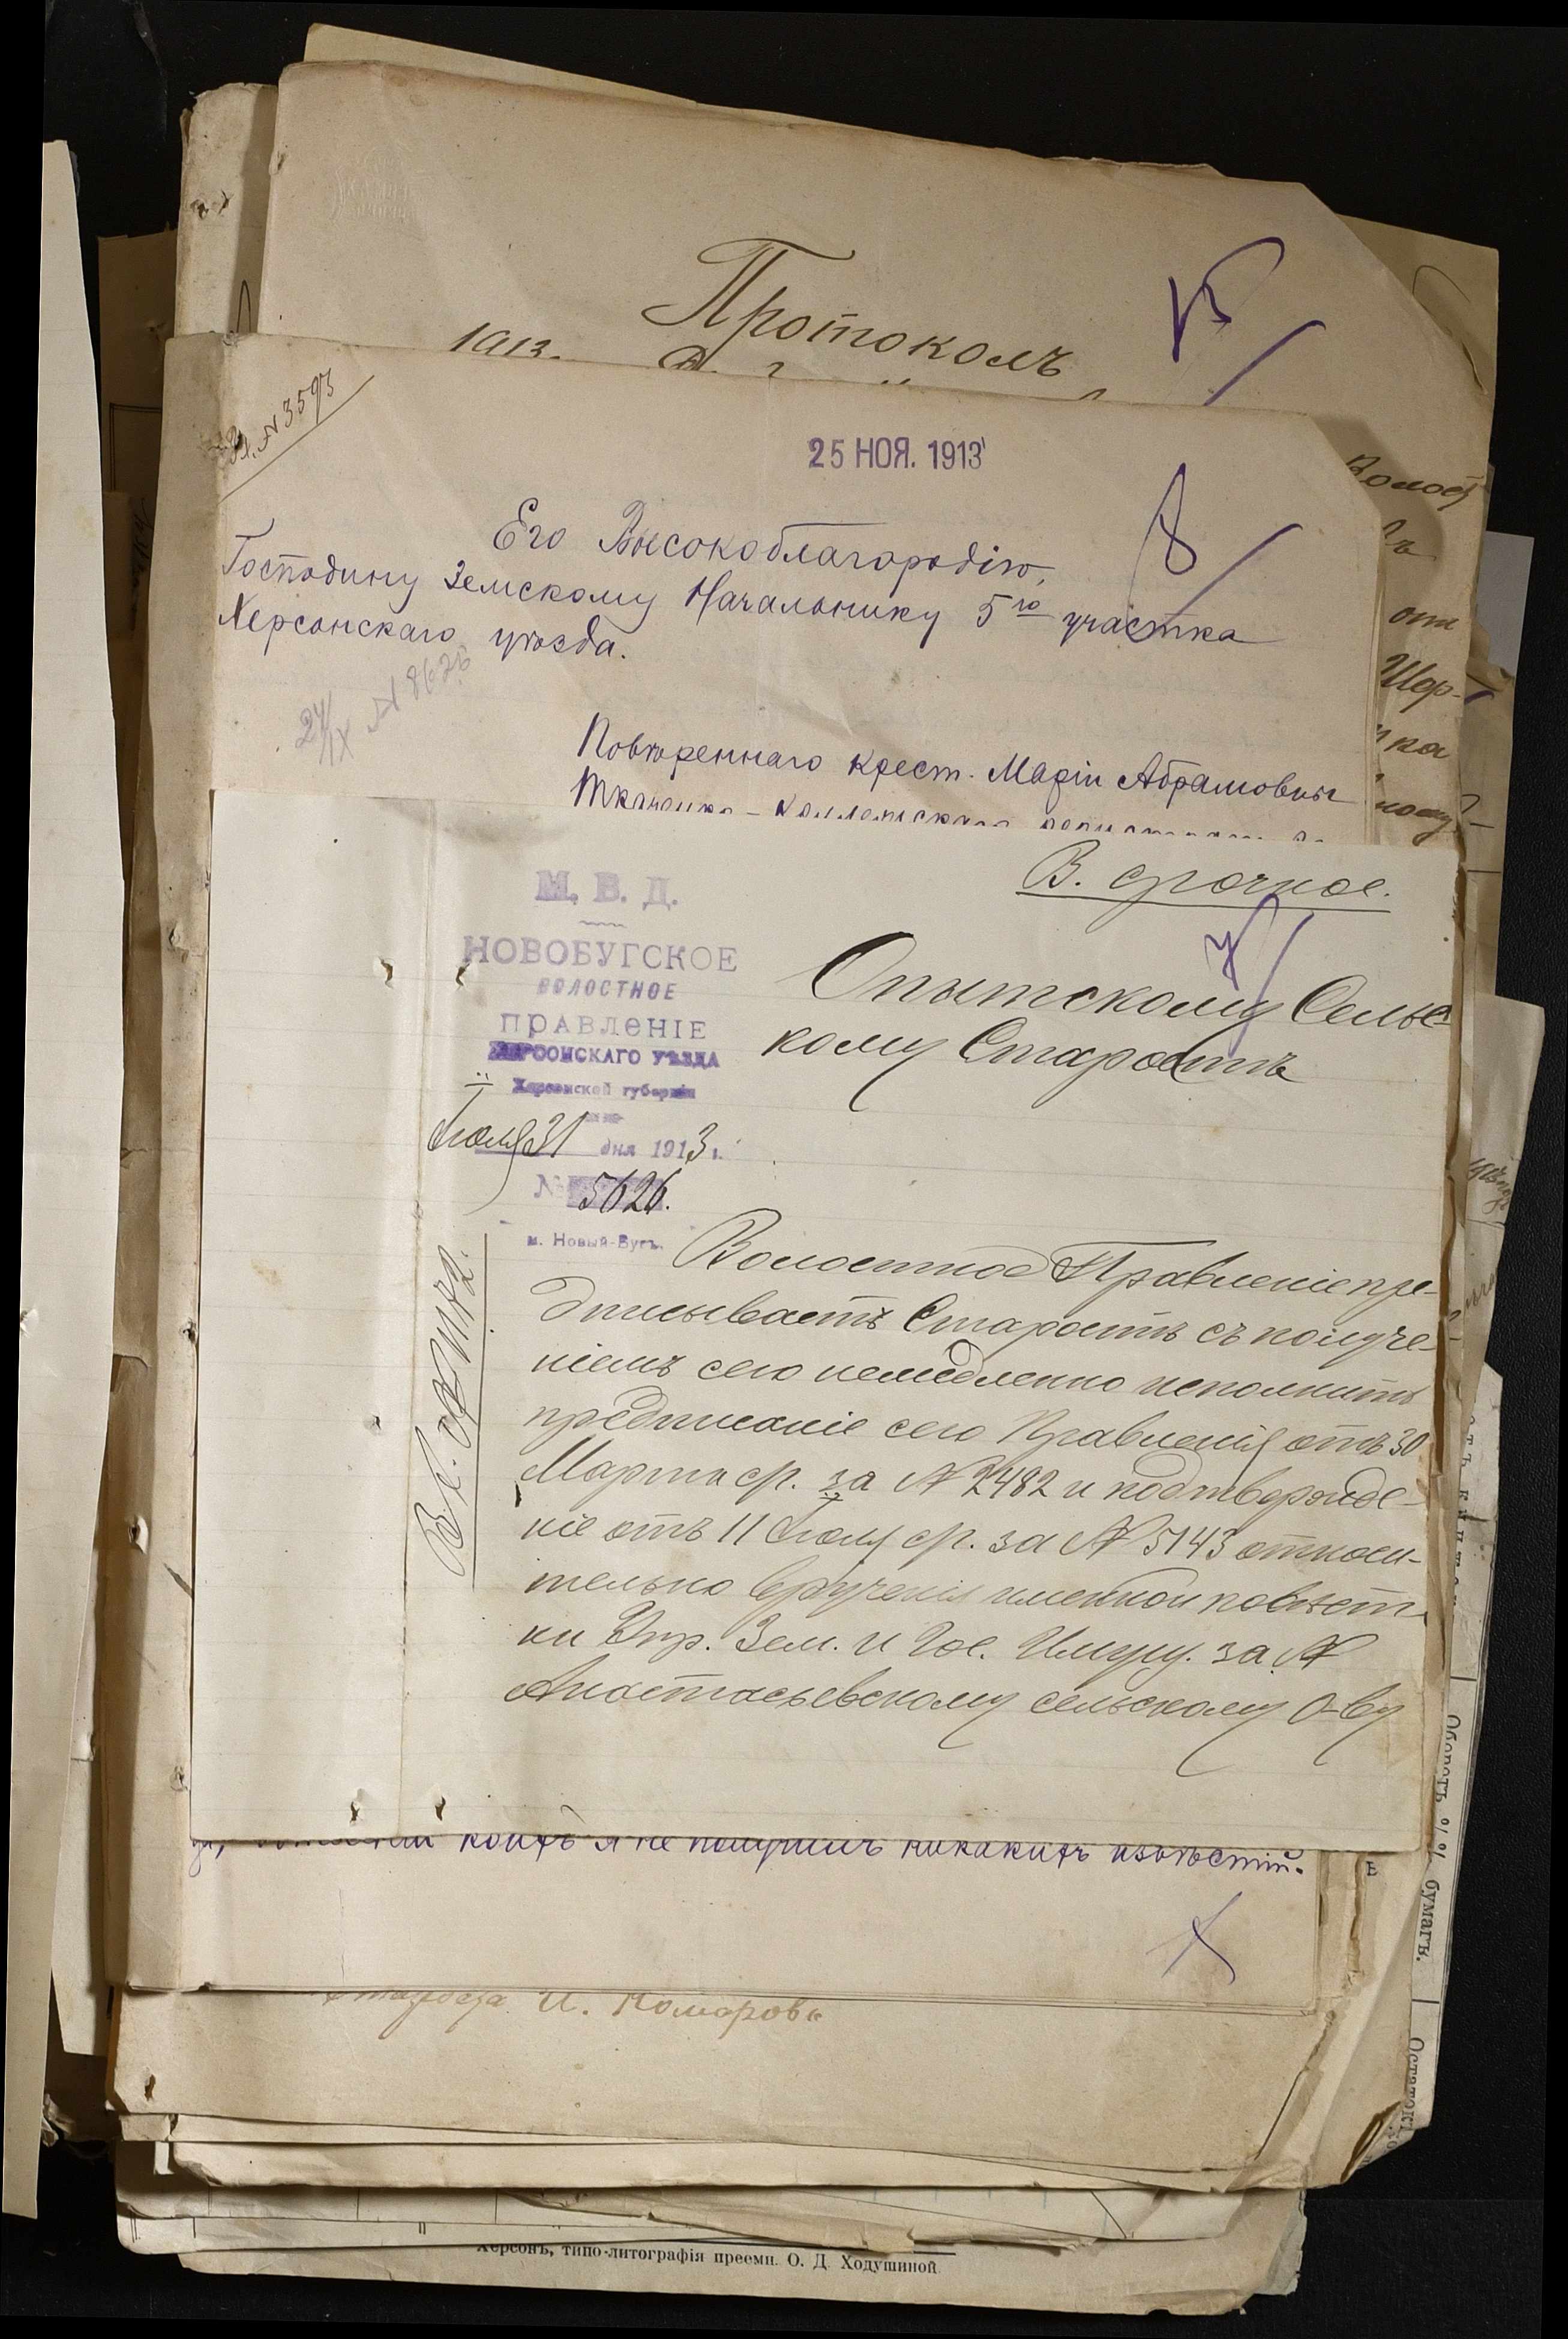 Протоколъ
1913.
25 НОЯ. 1913
Его Высокоблагородію,
Господину Земскому Начальнику 5го участка
Херсонскаго уѣзда.
24/IX № 8626
Повѣреннаго крест. Маріи Абрамовны
Ткаченко - Коллежскаго
В. срочное.
М. В. Д.
НОВОБУГСКОЕ
ВОЛОСТНОЕ
ПРАВЛЕНІЕ
ХЕРСОНСКАГО УѢЗДА
Херсонской губерніи
Іюля 31 дня 1913 г.
№ 5626.
м. Новый-Бугъ.
Опытскому Сельс
кому Старостѣ
Волостное Правленіе пре-
дписываетъ Старостѣ съ получе-
ніемъ сего немедленно исполнить
предписаніе сего Правленія отъ 30
Марта с/г. за № 2482 и подтвержде-
ніе отъ 11 Іюля с/г. за № 5143 относи-
тельно врученія именной повѣст-
ки Упр. Зем. и Гос. Имущ. за №
Анастасьевскому сельскому О-ву
я не получилъ никакихъ извѣстій.
И. Комаровъ
Волост
от
Шор-
ка
Область % % бумагъ.
Остатокъ
Херсонъ, типо-литографія преемн. О. Д. Ходушиной